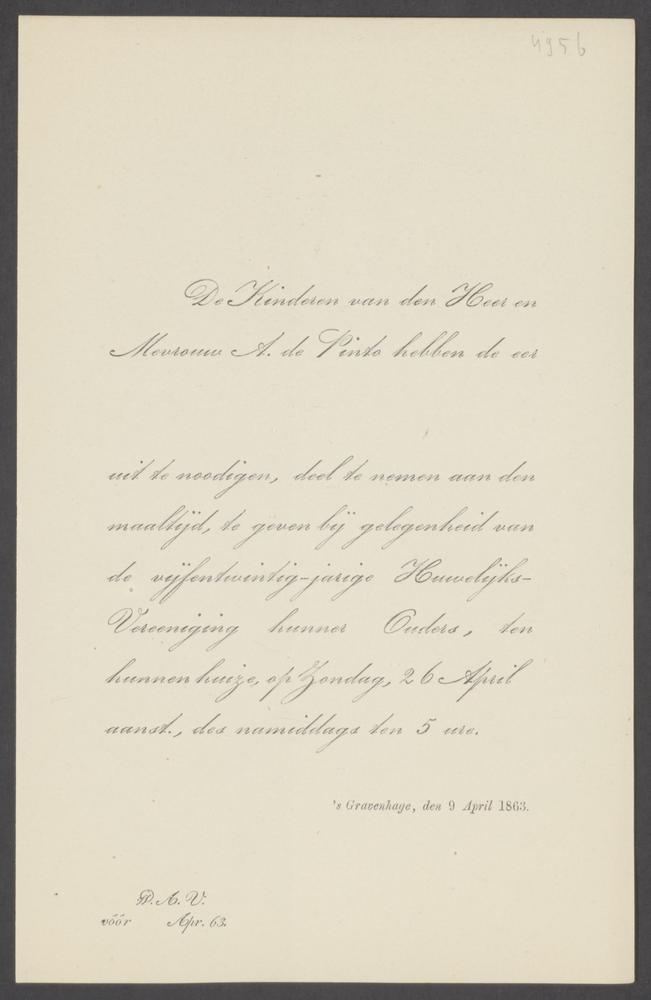 4956
De Kinderen van den Heer en
Mevrouw A. de Pinto hebben de eer
uit te noodigen, deel te nemen aan den
maaltijd, te geven bij gelegenheid van
de vijfentwintig-jarige Huwelijks-
Vereeniging hunner Ouders, ten
hunnen huize, op Zondag, 26 April
aanst., des namiddags ten 5 ure.
's Gravenhage, den 9 April 1863.
R. A. V.
vóór Apr. 63.